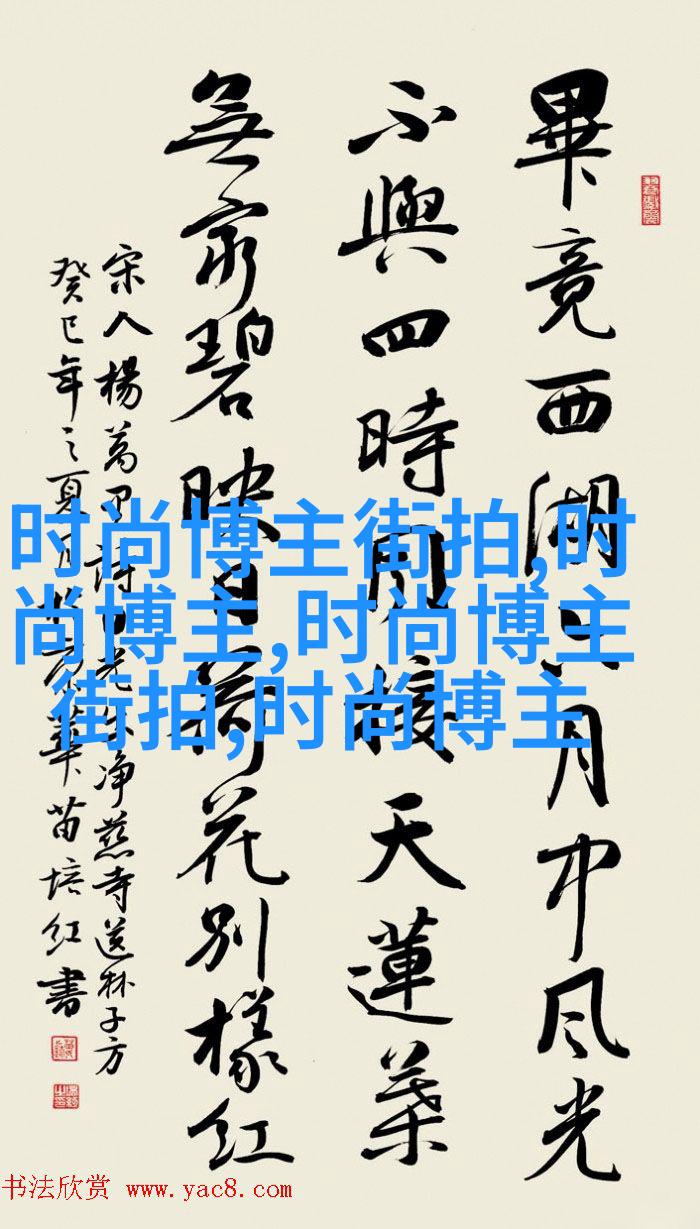 畢竟西湖六月中风光
不與四時同接天蓮葉
無窮碧映日荷花別樣紅
宋人楊萬里詩净慈寺送林子方
癸巳年之夏月於京華苗培红書
时尚博主街拍,时
尚博主,时尚博主
街拍,时尚博主
书法欣赏 www.yac8.com